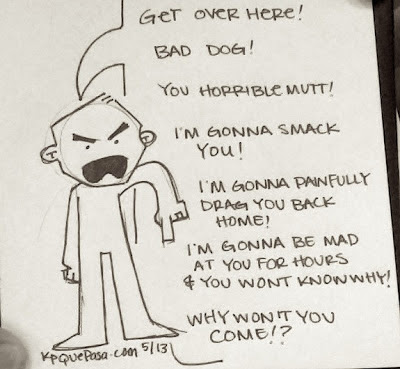 GET OVER HERE!
BAD DOG!
YOU HORRIBLE MUTT!
I'M GONNA SMACK
YOU!
I'M GONNA PAINFULLY
DRAG YOU BACK
HOME!
I'M GONNA BE MAD
AT YOU FOR HOURS
& YOU WONT KNOW WHY!
WHY WON'T YOU
COME!?
KPQUEPASA.COM 5/13